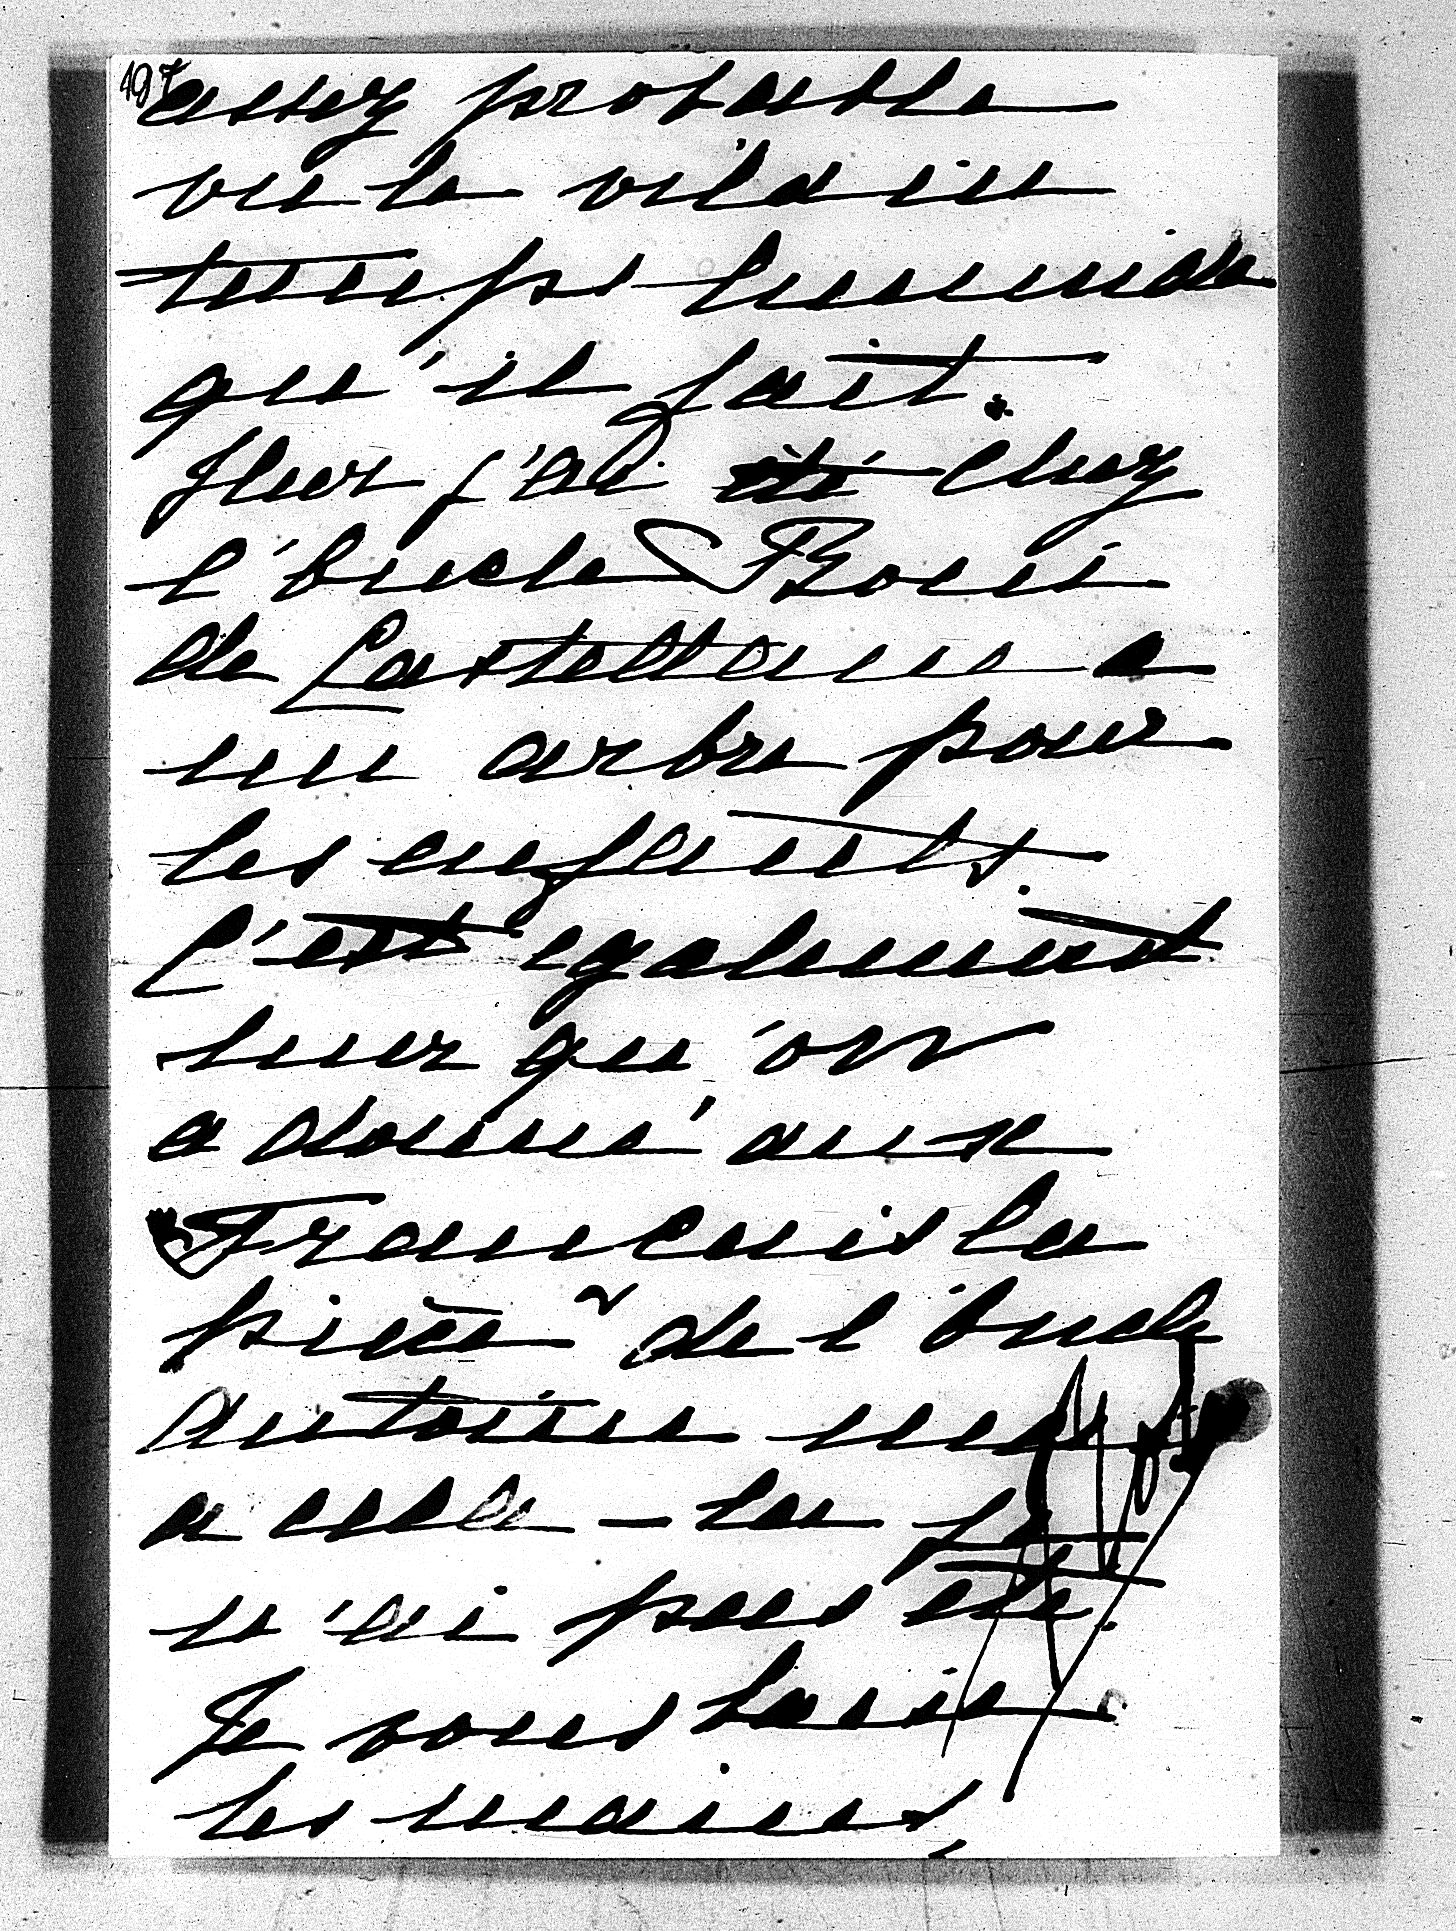 197
assez probable
vu le vilain
temps humide
qu'il fait.
Hier j'ai été chez
l'Oncle Boni
de Castellane a
un arbre pour
les enfants.
C'est également
hier qu'on
a donné aux
Français la
pièce de l'Oncle
Antoine mais
a celle-la je
n'ai pas été.
Je vous baise
les mains,